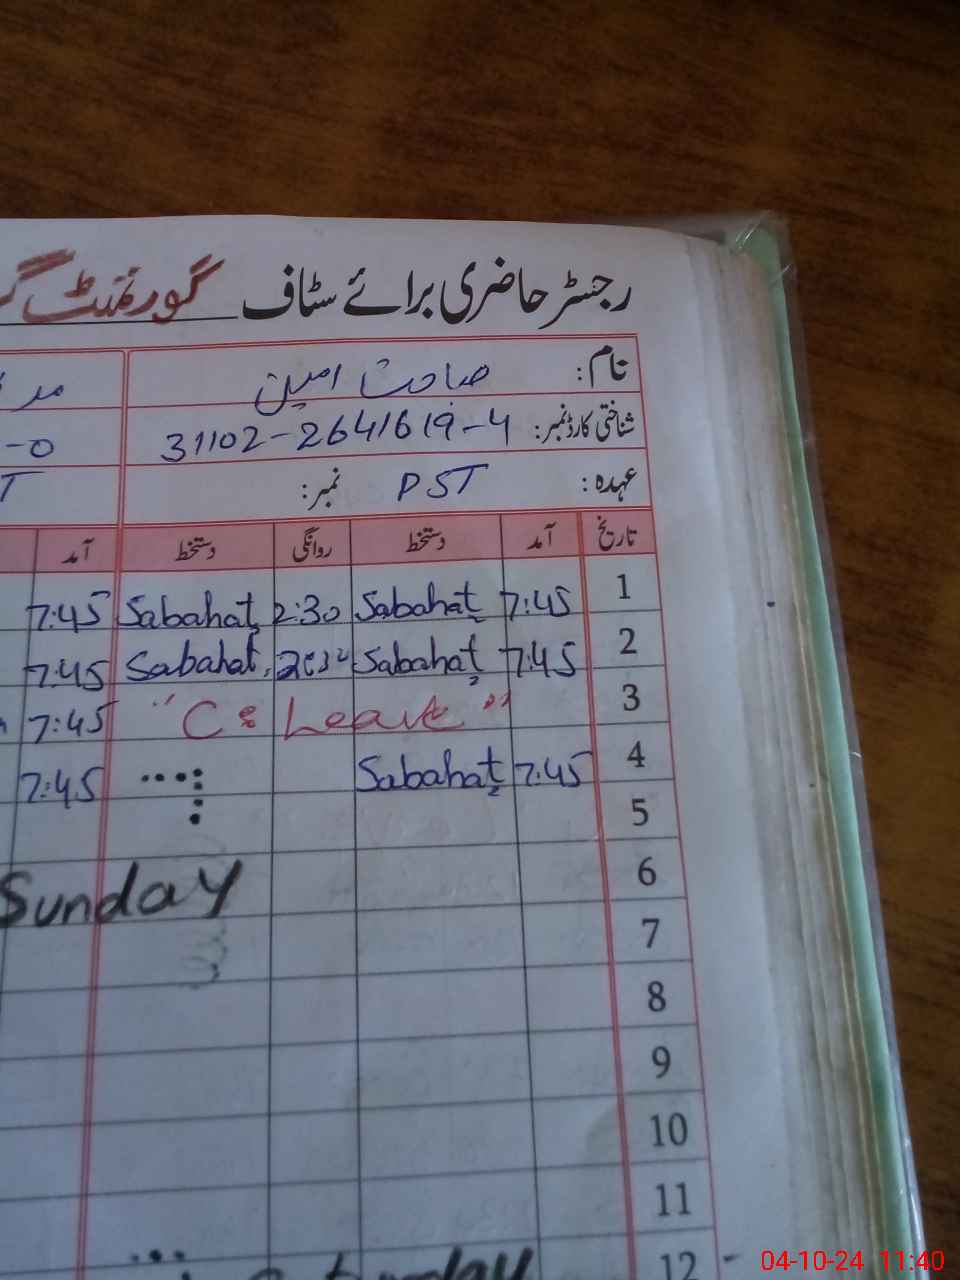 رجسٹر حاضری برائے سٹاف گورنمنٹ
نام: صباحت امین
شناختی کارڈ نمبر: 31102-2641619-4
-0
عہدہ: PST نمبر:
T
تاریخ آمد دستخط روانگی دستخط آمد
1 7:45 Sabahat 2:30 Sabahat 7:45
2 7:45 Sabahat Sabahat 7:45
3 "C: Leave" 7:45
4 7:45 Sabahat 7:45
5
6
Sunday
7
8
9
10
11
12
04-10-24 11:40